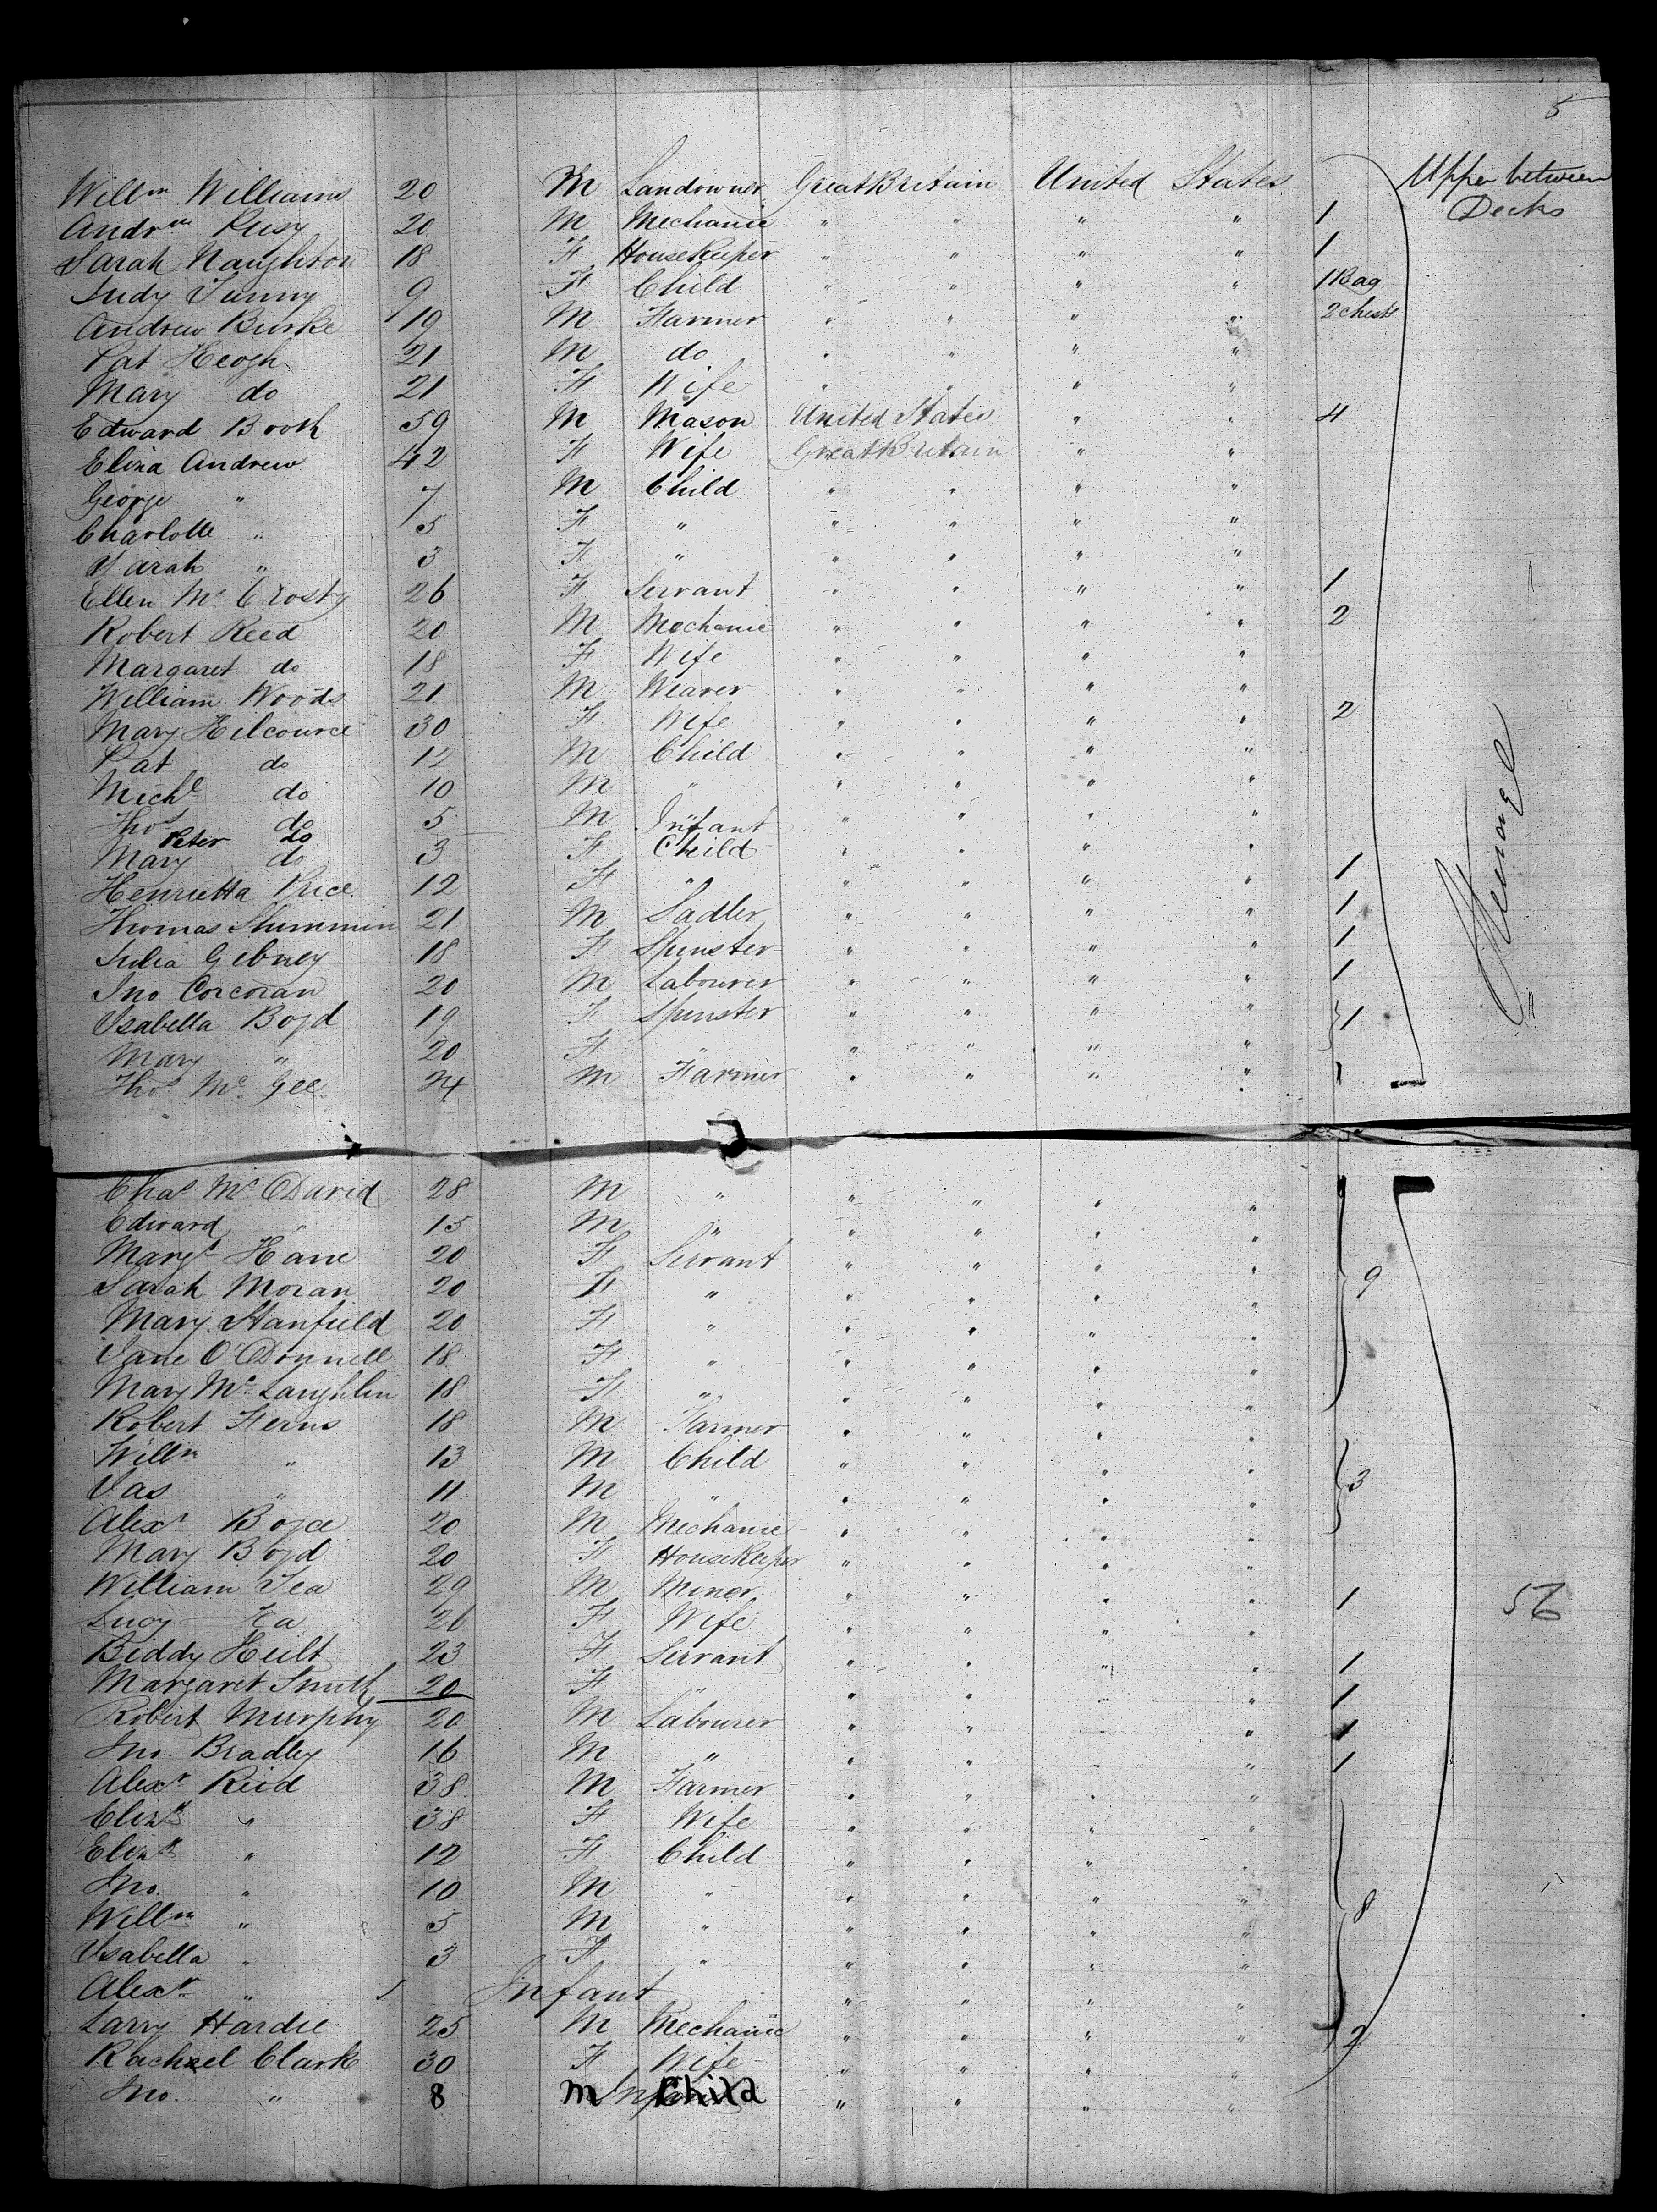 5
Willm Williams 20 M Landowner Great Britain United States Upper between
Decks
Andrw 20 M Mechanic " " " " 1
Sarah Naughton 18 F Housekeeper " " " " 1
Judy Tunny 9 F Child " " " " 1 Bag
Andrew Burke 19 M Farmer " " " " 2 chests
Pat Keogh 21 M do " " " "
Mary do 21 F Wife " " " "
Edward Booth 59 M Mason United States " " 4
Eliza Andrew 42 F Wife Great Britain " "
George " 7 M Child " " " "
Charlotte " 5 F " " " " "
Sarah " 3 F " " " " "
Ellen Mc Crosty 26 F Servant " " " " 1
Robert Reed 20 M Mechanic " " " " 2
Margaret do 18 F Wife " " " "
William Woods 21 M Weaver " " " " 2
Mary Kilcource 30 F Wife " " " "
Pat do 12 M Child " " " "
Michl do 10 M " " " " "
Thos do 5 M Infant " " " "
Peter do
Mary do 3 F Child " " " "
Henrietta Price 12 F " " " " " 1
Thomas Shimmin 21 M Sadler " " " " 1
Julia Gibney 18 F Spinster " " " " 1
Jno Corcoran 20 M Labourer " " " " 1
Isabella Boyd 19 F Spinster " " " " 1
Mary " 20 F " " " " "
Thos Mc Gee 24 M Farmer " " " " 1
Steerage
Chas Mc David 28 M " " " " "
Edward " 15 M " " " " "
Margt Kane 20 F Servant " " " "
Sarah Moran 20 F " " " " " 9
Mary Stanfield 20 F " " " " "
Jane O'Donnell 18 F " " " " "
Mary Mc Laughlin 18 F " " " " "
Robert Ferns 18 M Farmer " " " "
Willm " 13 M Child " " " "
Jas " 11 M " " " " " 3
Alexr Boyce 20 M Mechanic " " " "
Mary Boyd 20 F Housekeeper " " " "
William Tea 29 M Miner " " " " 1 56
Lucy 26 F Wife " " " "
Biddy Heilt 23 F Servant " " " " 1
Margaret Smith 20 F " " " " " 1
Robert Murphy 20 M Labourer " " " " 1
Jno. Bradley 16 M " " " " " 1
Alexr Reid 38 M Farmer " " " "
Elizth " 38 F Wife " " " "
Elizth " 12 F Child " " " "
Jno. " 10 M " " " " "
Willm " 5 M " " " " " 8
Isabella " 3 F " " " " "
Alexr " Infant " " " "
Larry Hardie 25 M Mechanic " " " " 2
Rachael Clark 30 F Wife " " " "
Jno. " 8 M Child " " " "